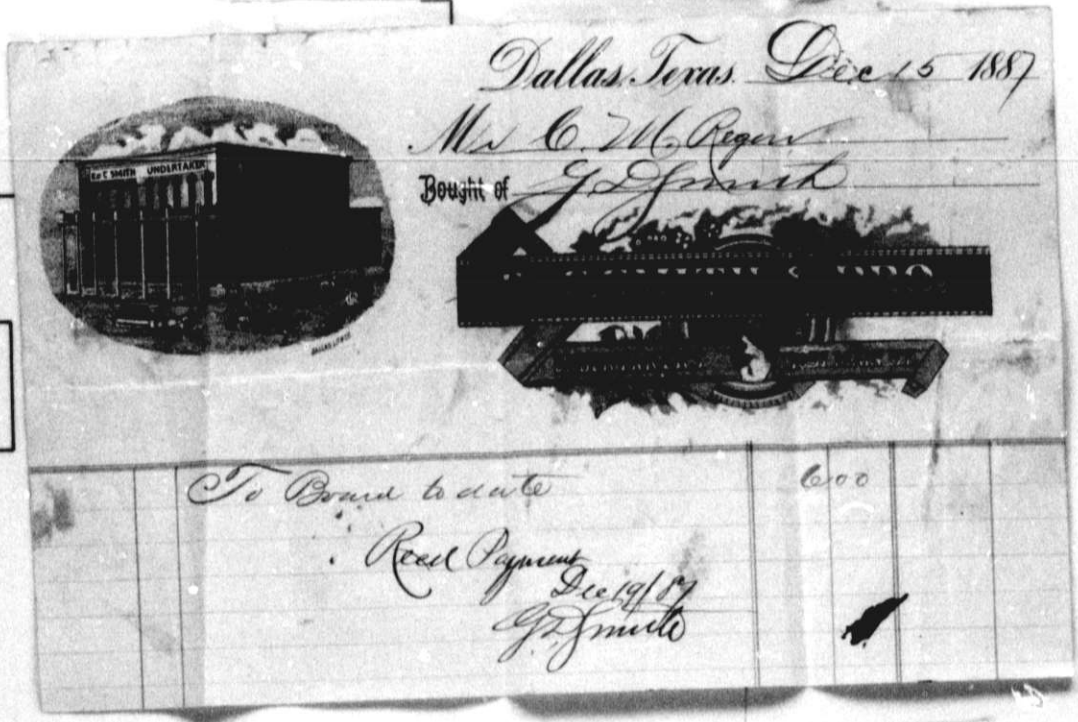 Dallas, Texas. Dec 15 1887
Mr C. M. Rogers
Bought of G D Smith
Ed C SMITH UNDERTAKER
SMITH & BRO.
To Board to date 600
Recd Payment
Dec 19/87
G D Smith